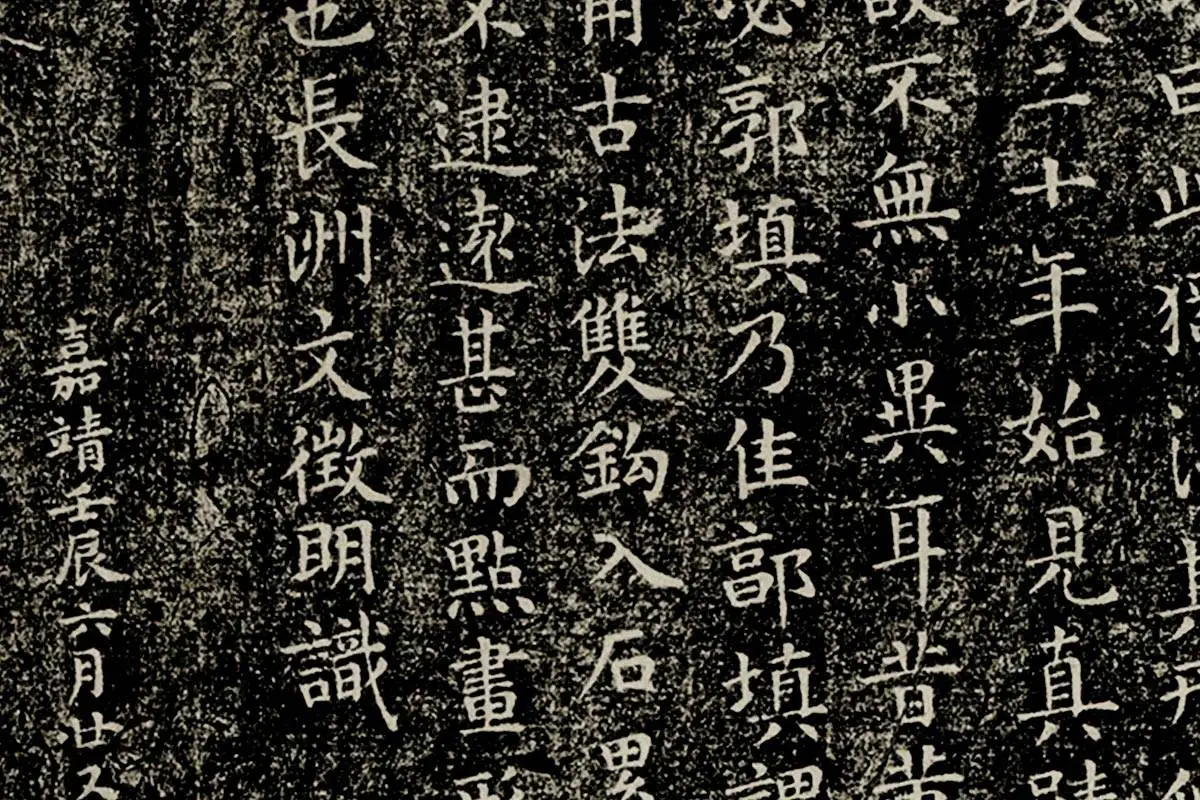 曰
二十年始見真蹟
故不無小異耳昔黃
郭填乃佳郭填謂
用古法雙鈎入石累
不逮遠甚而點畫形
也長洲文徵明識
嘉靖壬辰六月廿又